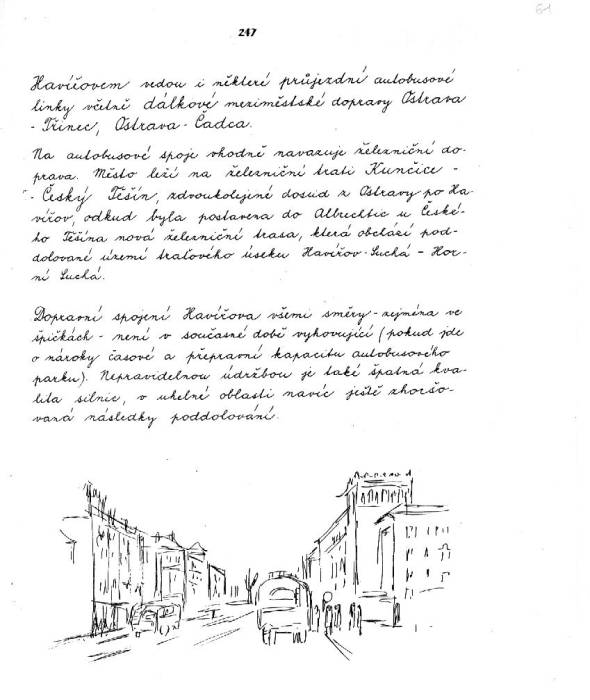 61
247
Havířovem vedou i některé průjezdní autobusové
linky včetně dálkové meziměstské dopravy Ostrava
- Třinec, Ostrava - Čadca.
Na autobusové spoje vhodně navazuje železniční do-
prava. Město leží na železniční trati Kunčice -
- Český Těšín, zdvoukolejněné dosud z Ostravy po Ha-
vířov, odkud byla postavena do Albrechtic u České-
ho Těšína nová železniční trasa, která obchází pod-
dolované území traťového úseku Havířov-Suchá - Hor-
ní Suchá.
Dopravní spojení Havířova všemi směry - zejména ve
špičkách - není v současné době vyhovující (pokud jde
o nároky časové a přepravní kapacitu autobusového
parku). Nepravidelnou údržbou je také špatná kva-
lita silnic, v uhelné oblasti navíc ještě zhoršo-
vaná následky poddolování.